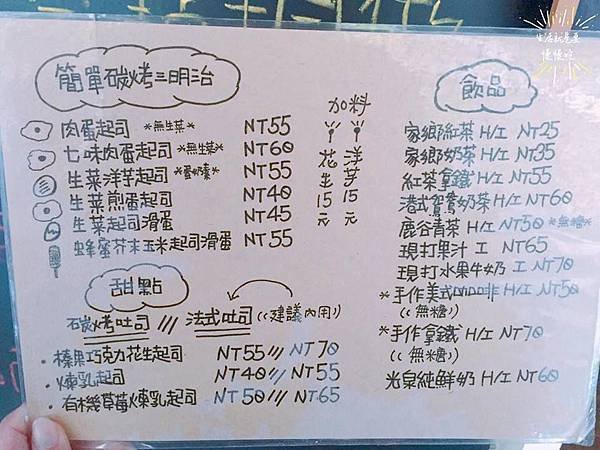 生活就是要
慢慢吃
簡單碳烤三明治
肉蛋起司 *無生菜* NT55
七味肉蛋起司 *無生菜* NT60
生菜洋芋起司 *蛋奶素* NT55
生菜煎蛋起司 NT40
生菜起司滑蛋 NT45
蜂蜜芥末玉米起司滑蛋 NT55
加料
花生15元
洋芋15元
甜點
碳烤吐司 /// 法式吐司 ((建議內用))
・榛果巧克力花生起司 NT55 /// NT70
・煉乳起司 NT40 /// NT55
・有機草莓煉乳起司 NT50 /// NT65
飲品
家鄉紅茶 H/I NT25
家鄉奶茶 H/I NT35
紅茶拿鐵 H/I NT55
港式鴛鴦奶茶 H/I NT60
鹿谷青茶 H/I NT50 *無糖*
現打果汁 I NT65
現打水果牛奶 I NT70
*手作美式咖啡 H/I NT50
((無糖))
*手作拿鐵 H/I NT70
((無糖))
光泉純鮮奶 H/I NT60